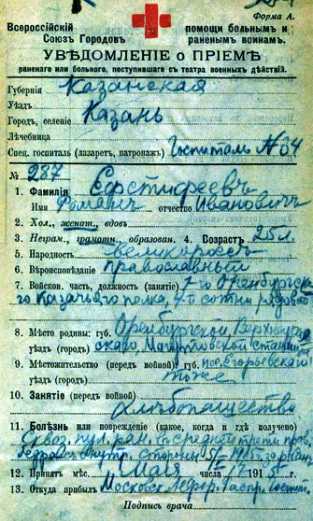 Форма А.
Всероссійскій помощи больнымъ и
Союзъ Городовъ раненымъ воинамъ.
УВѢДОМЛЕНІЕ о ПРІЕМѢ
раненаго или больного, поступившаго съ театра военныхъ дѣйствій.
Губернія Казанская
Уѣздъ
Городъ, селеніе Казань
Лѣчебница
Спец. госпиталь (лазаретъ, патронажъ) Госпиталь № 34
№ 287
1. Фамилія Ефстифеевъ
Имя Романъ отчество Ивановичъ
2. Хол., женат., вдовъ
3. Неграм., грамотн., образован. 4. Возрастъ 25 л.
5. Народность великороссъ
6. Вѣроисповѣданіе православный
7. Войсков. часть, должность (занятіе) 7-го Оренбургска-
го Казачьяго полка, 4-й сотни рядовой
8. Мѣсто родины: губ. Оренбургской, Верхнеур.
уѣздъ (городъ) Станица
9. Мѣстожительство (передъ войной): губ. пос. Егорьевскій
уѣздъ (городъ) тоже
10. Занятіе (передъ войной)
Хлѣбопашество
11. Болѣзнь или поврежденіе (какое, когда и гдѣ получено)
Сквоз. пул. ран. въ средней трети прав.
12. Принятъ мѣс. Мая число 1915 г.
13. Откуда прибылъ Московск. госпит.
Подпись врача